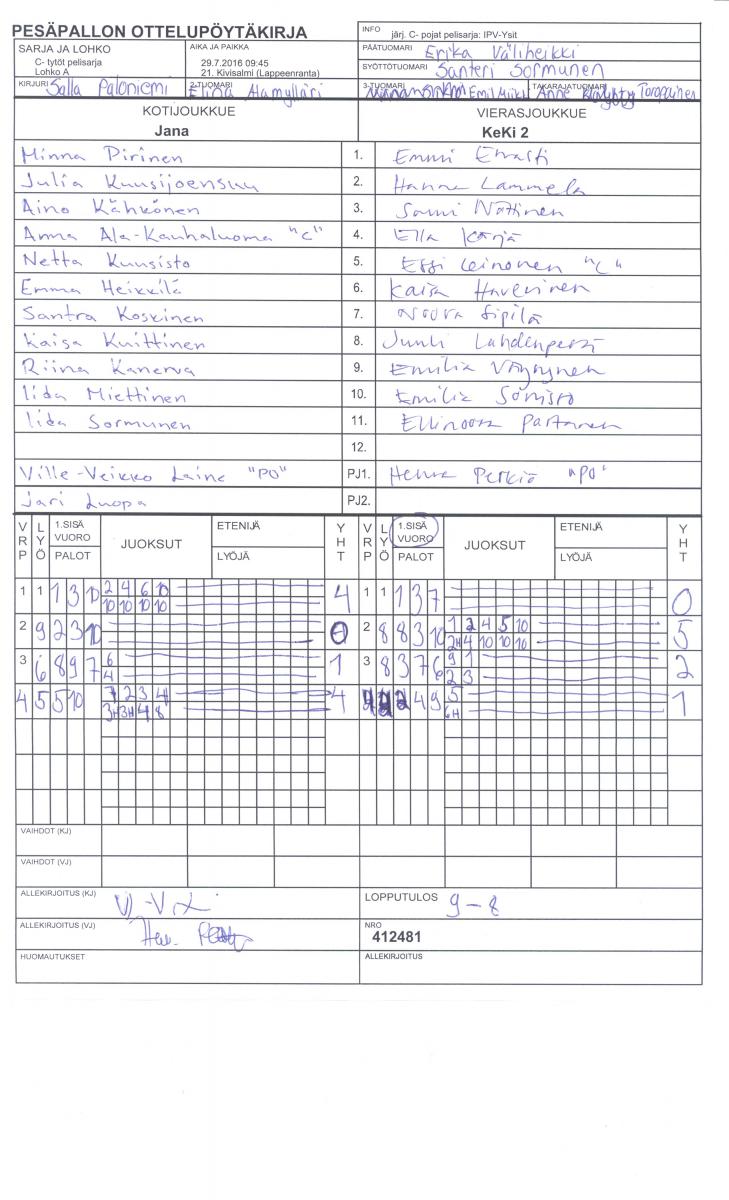 PESÄPALLON OTTELUPÖYTÄKIRJA
INFO järj. C- pojat pelisarja: IPV-Ysit
SARJA JA LOHKO
C- tytöt pelisarja
Lohko A
AIKA JA PAIKKA
29.7.2016 09:45
21. Kivisalmi (Lappeenranta)
PÄÄTUOMARI Erika Väliheikki
SYÖTTÖTUOMARI Santeri Sormunen
KIRJURI Salla Paloniemi
2-TUOMARI Elina Alamylläri
3-TUOMARI
TAKARAJATUOMARI Anne Toropainen
KOTIJOUKKUE
Jana
VIERASJOUKKUE
KeKi 2
Minna Pirinen 1. Emmi
Julia Kuusijoensuu 2. Hanna Lammela
Aino Kähkönen 3. Nättinen
Anna Ala-Kauhaluoma "C" 4. Ella Kärjä
Netta Kuusisto 5. Essi Leinonen "C"
Emma Heikkilä 6. Kaisa Haverinen
Santra Koskinen 7. Noora Sipilä
Kaisa Kuittinen 8. Lahdenperä
Riina Kanerva 9. Emilia Väyrynen
Iida Miettinen 10. Emilia
Iida Sormunen 11. Ellinoora Partanen
12.
Ville-Veikko Laine "PO" PJ1. Perkiö "PO"
Jari Luopa PJ2.
VRP LYÖ 1.SISÄ VUORO PALOT JUOKSUT ETENIJÄ LYÖJÄ YHT VRP LYÖ 1.SISÄ VUORO PALOT JUOKSUT ETENIJÄ LYÖJÄ YHT
1 1 1 3 10 2 4 6 10 4 1 1 1 3 7 0
10 10 10 10
2 9 2 3 10 0 2 8 8 3 10 1 2 4 5 10 5
2H 4 10 10 10
3 6 8 9 7 6 1 3 8 3 7 6 9 1 2
4 2 3
4 5 5 10 1 2 3 4 4 2 4 9 5 1
3H 3H 4 8 6H
VAIHDOT (KJ)
VAIHDOT (VJ)
ALLEKIRJOITUS (KJ)
LOPPUTULOS 9-8
ALLEKIRJOITUS (VJ)
NRO
412481
HUOMAUTUKSET
ALLEKIRJOITUS